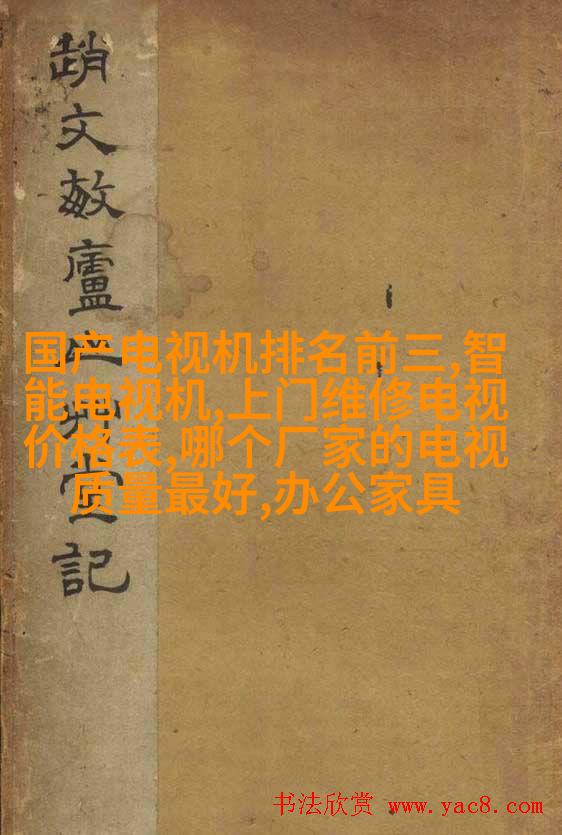 趙文敏廬山艸堂記
国产电视机排名前三,智
能电视机,上门维修电视
价格表,哪个厂家的电视
质量最好,办公家具
书法欣赏 www.yac8.com